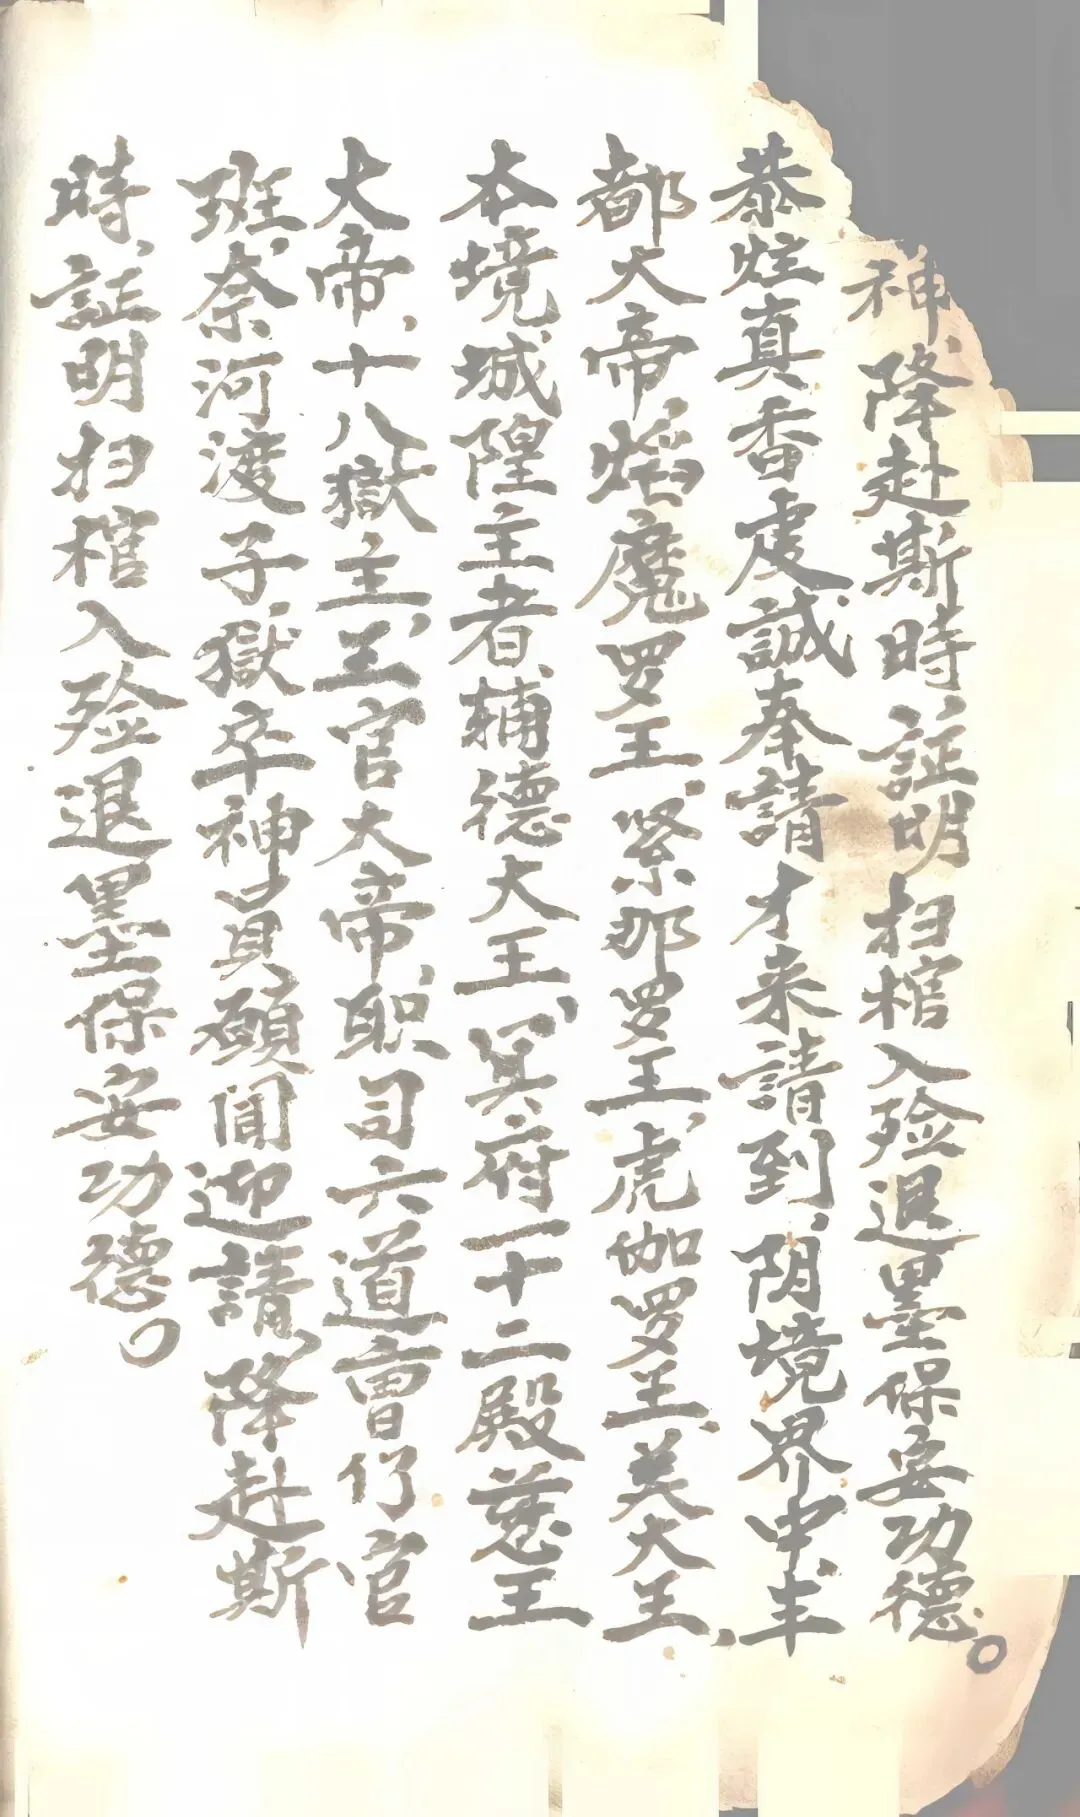 神、降赴斯時、証明扫棺入殓退墨保安功德。
恭炷真香虔誠奉請才来請到、阴境界中、丰
都大帝焰魔罗王、紧那罗王、虎伽罗王、美大王、
本境城隍主者、辅德大王、冥府一十二殿慈王
大帝、十八獄主、王官大帝、职司六道曹仃官
班、奈河渡子、獄卒神員、願聞迎請、降赴斯
時、証明扫棺入殓退墨保安功德。